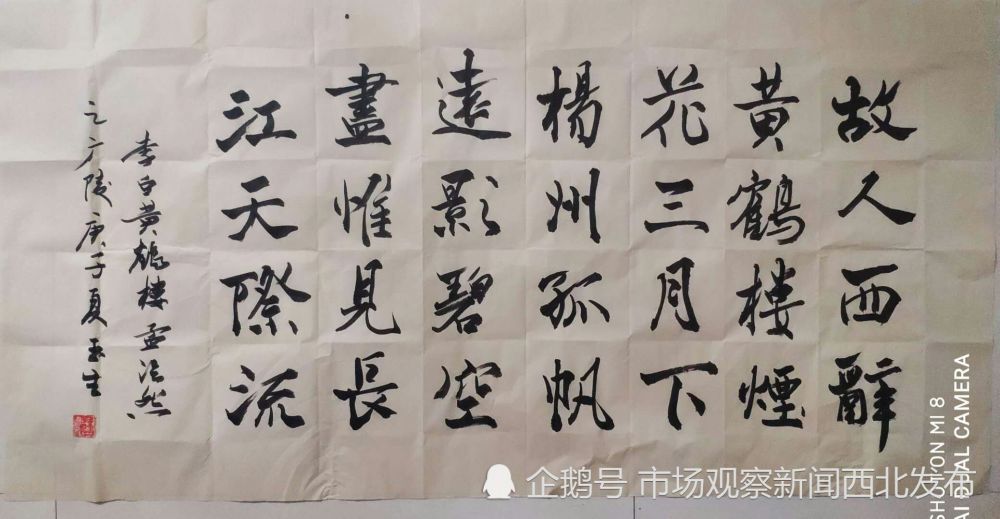 故人西辭
黃鶴樓煙
花三月下
楊州孤帆
遠影碧空
盡惟見長
江天際流
李白黄鶴樓孟浩然
之广陵庚子夏玉生
企鹅号 市场观察新闻西北发布
SHOT ON MI 8
AI DUAL CAMERA